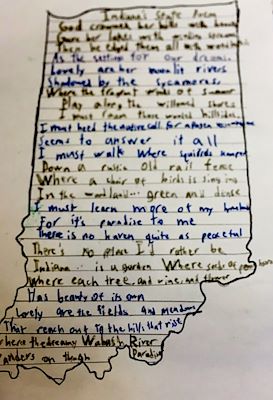 Indiana's State Poem
God crowned her hills with beauty
Gave her lakes with
Then he edged them all with
As the setting for our dreams
Lovely are her moonlit rivers
Shadowed by the sycamores
Where the fragrant winds of summer
Play along the willowed shores
I must roam those wooded hillsides
I must heed the native call for a
Seems to answer it all
I must walk where squirrels scamper
Down a rustic old rail fence
Where a choir of birds is singing
In the woodland green and dense
I must learn more of my homeland
For it's paradise to me
There is no haven quite as peaceful
There's no place I'd rather be
Indiana is a garden Where seeds of peace
Where each tree, and vine, and flower
Has beauty of its own
Lovely are the fields and meadows
That reach out to the hills that rise
where the dreamy Wabash River
Wanders on through Paradise